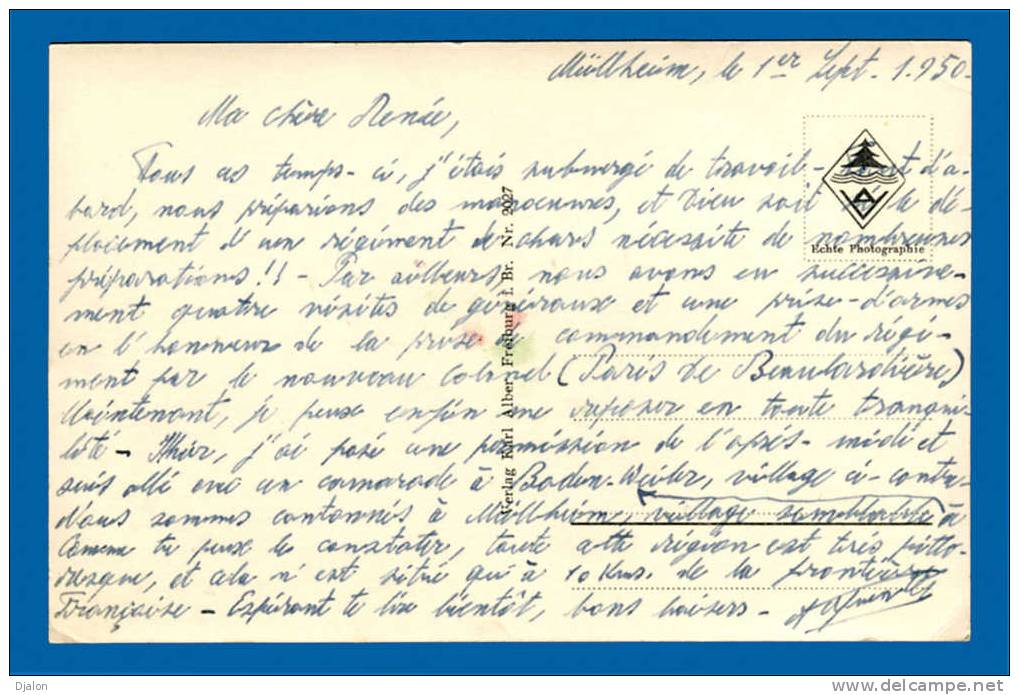 Müllheim, le 1er Sept. 1.950.
Ma chère Renée,
Tous ces temps-ci, j'étais submergé de travail - d'a-
bord, nous préparions des manoeuvres, et Dieu sait si le dé-
placement d'un régiment de chars nécessite de nombreuses
préparations!! - Par ailleurs, nous avons eu successive-
ment quatre visites de généraux et une prise-d'armes
en l'honneur de la prise de commandement du régi-
ment par le nouveau Colonel (Paris de Beaulardière)
Maintenant, je peux enfin me reposer en toute tranqui-
lité - Hier, j'ai posé une permission de l'après-midi et
suis allé avec un camarade à Baden-Weiler, village ci-contre
Nous sommes cantonnés à Müllheim, village semblable à
Comme tu peux le constater, toute cette région est très pitto-
resque, et cela n'est situé qu'à 10 Kms. de la frontière
Française - Espérant te lire bientôt, bons baisers -
Echte Photographie
Verlag Karl Alber, Freiburg i. Br. Nr. 2027
Djalon
www.delcampe.net